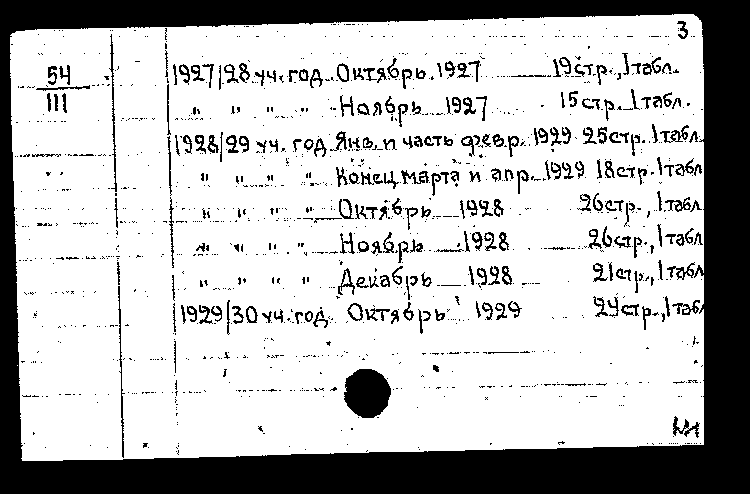 3
54 1927/28 уч. год Октябрь 1927 19 стр., 1 табл.
111 " " " " Ноябрь 1927 15 стр. 1 табл.
1928/29 уч. год Янв. и часть февр. 1929 25 стр. 1 табл
" " " " Конец марта и апр. 1929 18 стр. 1 табл
" " " " Октябрь 1928 26 стр., 1 табл
" " " " Ноябрь 1928 26 стр., 1 табл
" " " " Декабрь 1928 21 стр., 1 табл
1929/30 уч. год Октябрь 1929 24 стр., 1 табл